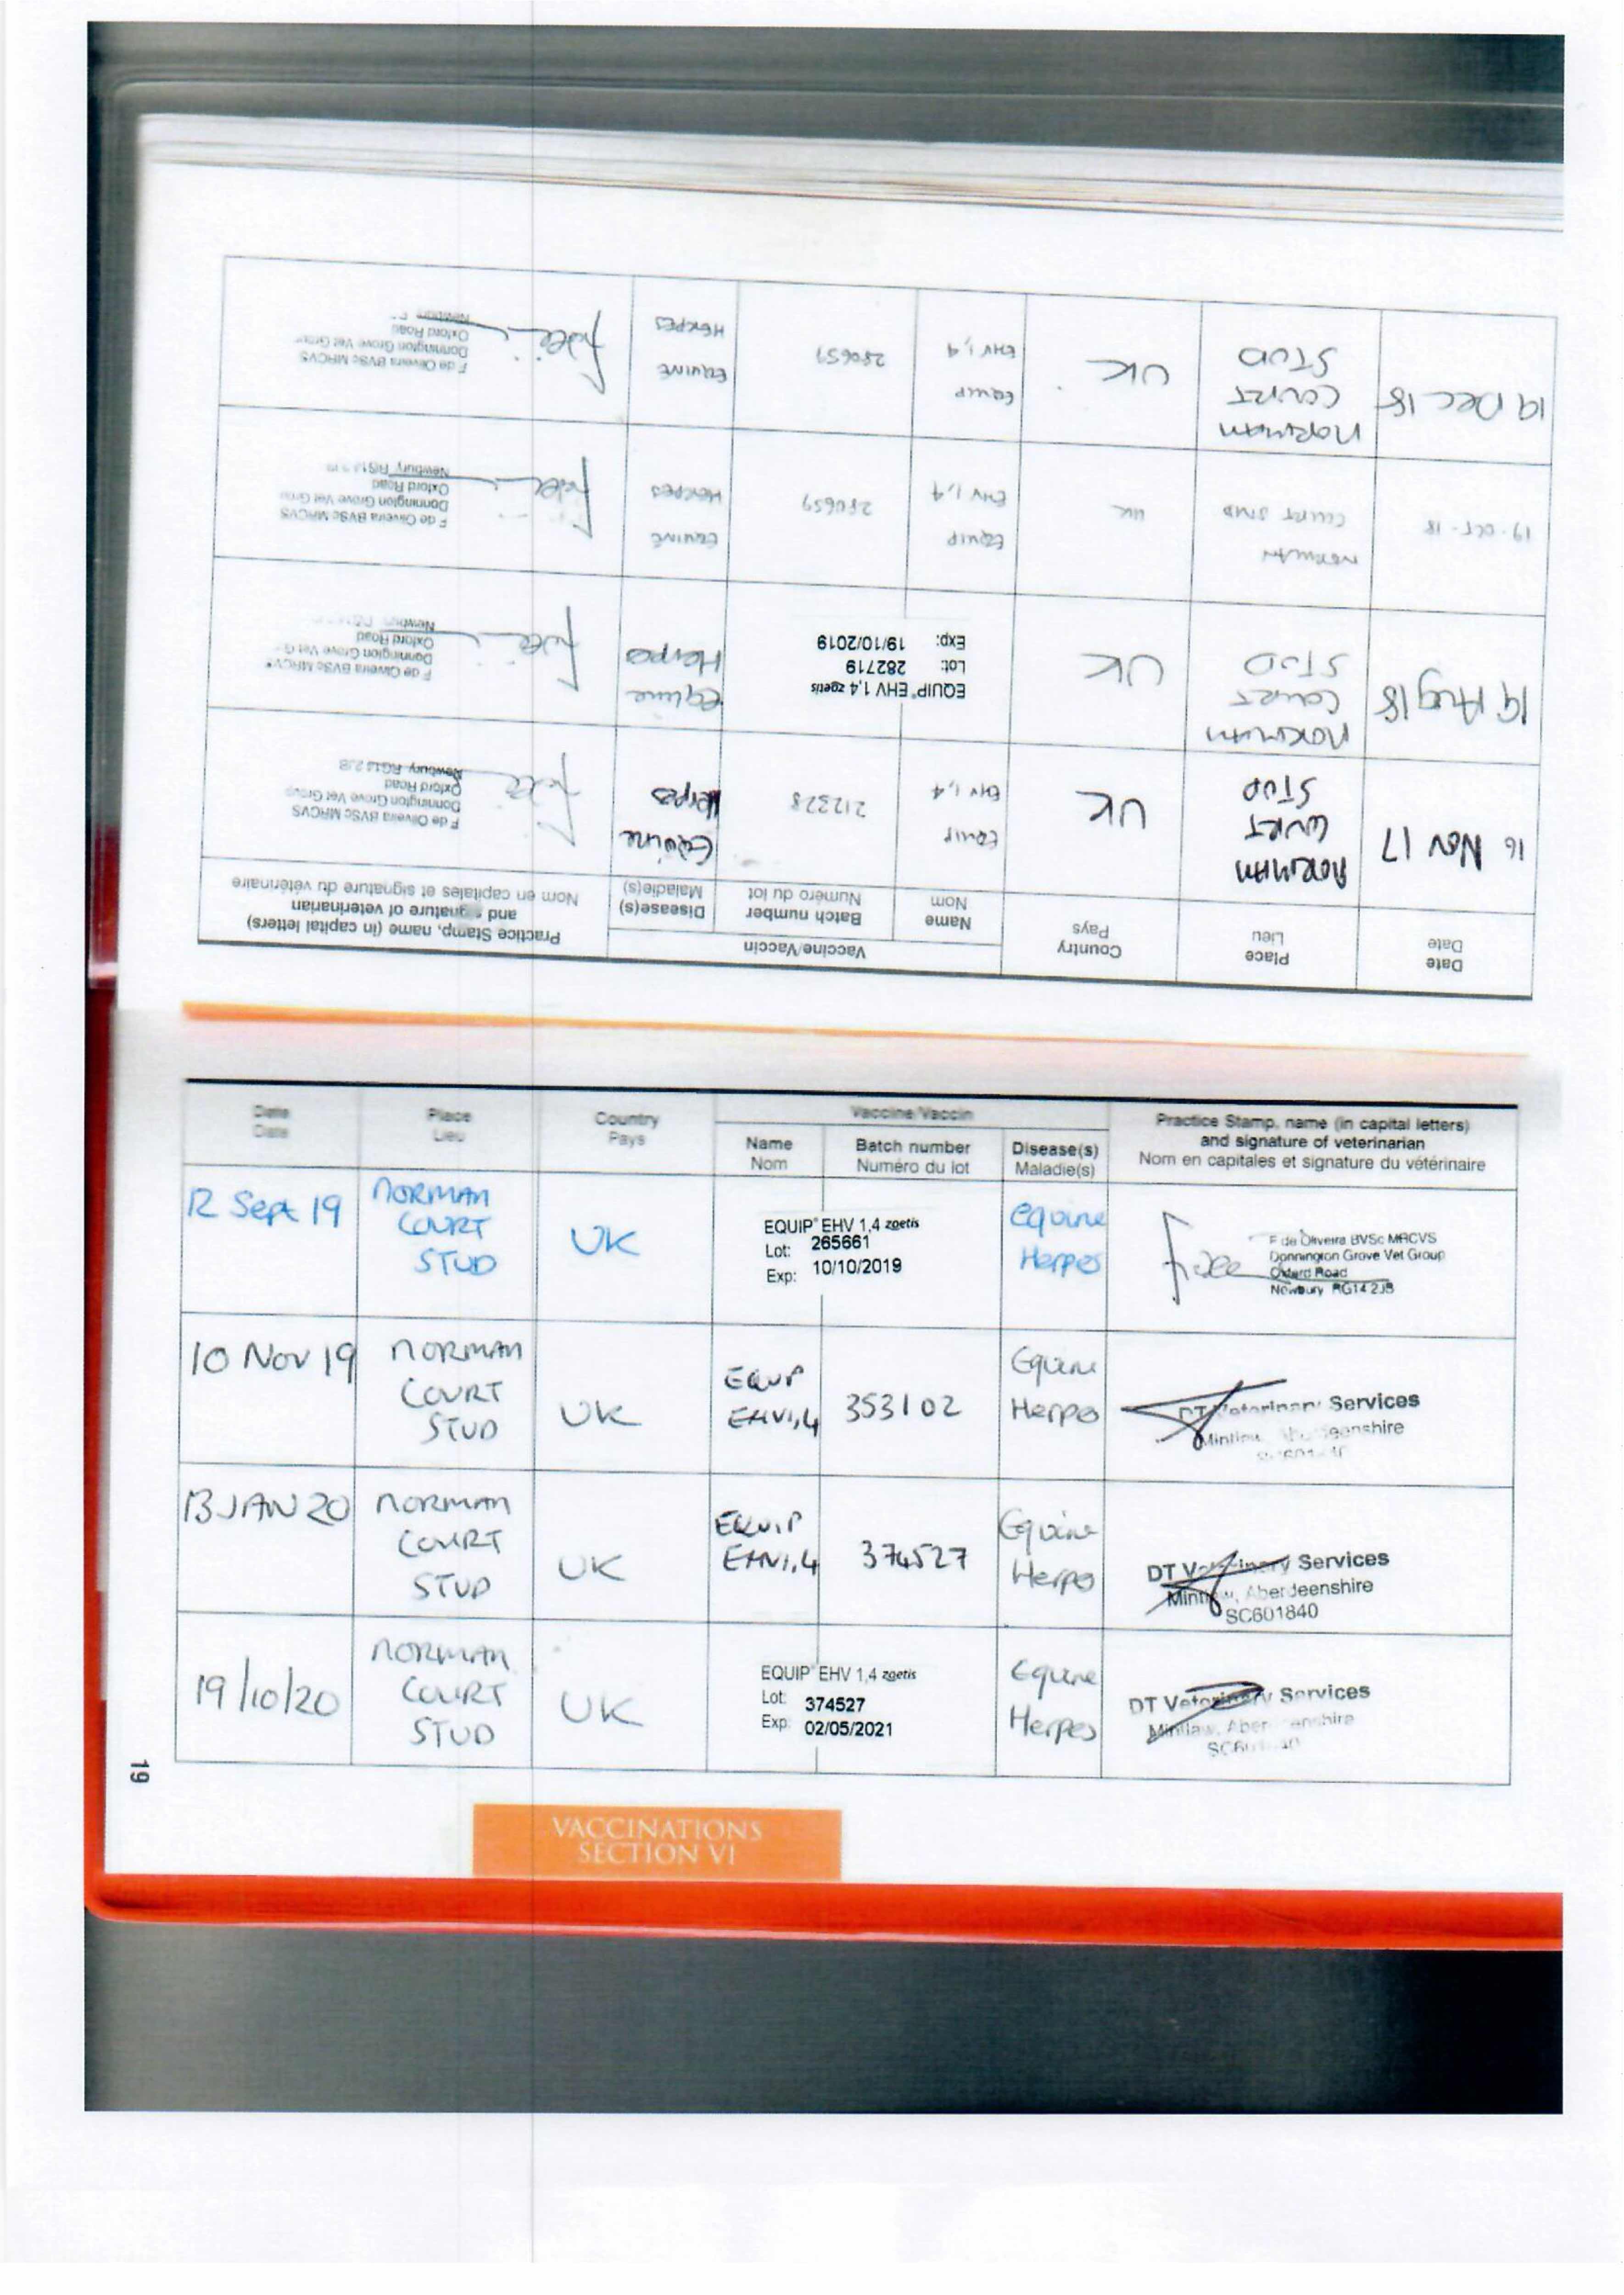 Date
Date
Place
Lieu
Country
Pays
Vaccine/Vaccin
Name
Nom
Batch number
Numéro du lot
Disease(s)
Maladie(s)
Practice Stamp, name (in capital letters)
and signature of veterinarian
Nom en capitales et signature du vétérinaire
16 Nov 17
NORMAN
COURT
STUD
UK
EQUIP
EHV 1,4
212328
Equine
Herpes
F de Oliveira BVSc MRCVS
Donnington Grove Vet Group
Oxford Road
Newbury RG14 2JB
19 Aug 18
NORMAN
COURT
STUD
UK
EQUIP® EHV 1,4 zoetis
Lot: 282719
Exp: 19/10/2019
Equine
Herpes
F de Oliveira BVSc MRCVS
Donnington Grove Vet G
Oxford Road
Newbury
19-OCT-18
NORMAN
COURT STUD
UK
EQUIP
EHV 1,4
280659
EQUINE
HERPES
F de Oliveira BVSc MRCVS
Donnington Grove Vet Group
Oxford Road
Newbury RG14
19 Dec 18
NORMAN
COURT
STUD
UK
EQUIP
EHV 1,4
280659
EQUINE
HERPES
F de Oliveira BVSc MRCVS
Donnington Grove Vet Group
Oxford Road
Newbury
Date
Date
Place
Lieu
Country
Pays
Vaccine/Vaccin
Name
Nom
Batch number
Numéro du lot
Disease(s)
Maladie(s)
Practice Stamp, name (in capital letters)
and signature of veterinarian
Nom en capitales et signature du vétérinaire
12 Sept 19
NORMAN
COURT
STUD
UK
EQUIP® EHV 1,4 zoetis
Lot: 265661
Exp: 10/10/2019
Equine
Herpes
F de Oliveira BVSc MRCVS
Donnington Grove Vet Group
Oxford Road
Newbury RG14 2JB
10 Nov 19
NORMAN
COURT
STUD
UK
EQUIP
EHV1,4
353102
Equine
Herpes
DT Veterinary Services
Mintlaw, Aberdeenshire
13 JAN 20
NORMAN
COURT
STUD
UK
EQUIP
EHV1,4
374527
Equine
Herpes
DT Veterinary Services
Mintlaw, Aberdeenshire
SC601840
19/10/20
NORMAN
COURT
STUD
UK
EQUIP® EHV 1,4 zoetis
Lot: 374527
Exp: 02/05/2021
Equine
Herpes
DT Veterinary Services
Mintlaw, Aberdeenshire
SC601840
19
VACCINATIONS
SECTION VI